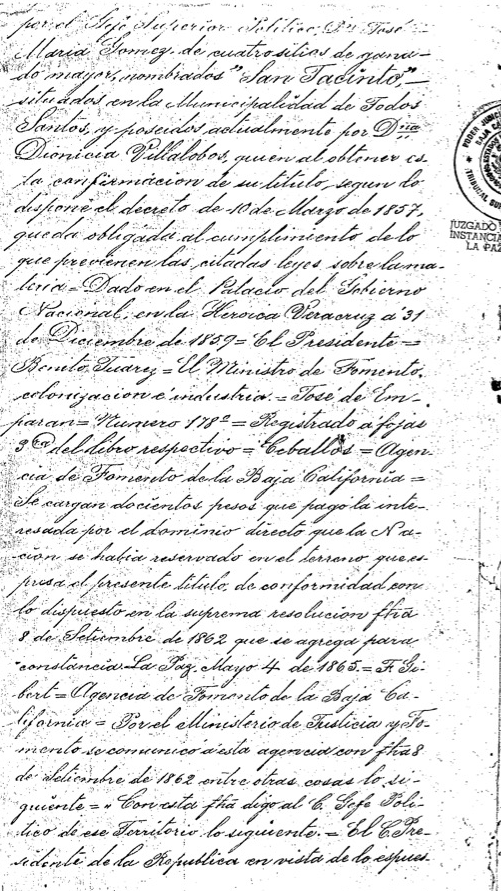 por el Gefe Superior Politico, Dn José
Maria Gomez, de cuatro sitios de gana-
do mayor, nombrados "San Jacinto",
situados en la Municipalidad de Todos
Santos, y poseidos actualmente por Dña
Dionicia Villalobos, quien al obtener es-
ta confirmacion de su titulo, segun lo
dispone el decreto de 10 de Marzo de 1857,
queda obligada al cumplimiento de lo
que previenen las citadas leyes sobre la ma-
teria = Dado en el Palacio del Gobierno
Nacional, en la Heroica Veracruz á 31
de Diciembre de 1859 = El Presidente =
Benito Juárez = El Ministro de Fomento,
colonizacion é industria. = José de Em-
paran = Numero 178 = Registrado á fojas
3 del libro respectivo = Ceballos = Agen-
cia de Fomento de la Baja California =
Se cargan docientos pesos que pagó la inte-
resada por el dominio directo que la Na-
ción se habia reservado en el terreno que es-
presa el presente titulo, de conformidad con
lo dispuesto en la suprema resolucion fha
8 de Setiembre de 1862 que se agrega para
constancia. La Paz, Mayo 4 de 1865. = F. Gi-
bert = Agencia de Fomento de la Baja Ca-
lifornia = Por el Ministerio de Justicia y Fo-
mento se comunicó á esta agencia con fha 8
de Setiembre de 1862 entre otras cosas lo si-
guiente = "Con esta fha digo al C. Gefe Polí-
tico de ese Territorio lo siguiente. = El C. Pre-
sidente de la Republica en vista de lo espues-
PODER
BAJA
TRIBUNAL
JUZGADO
INSTANCIA
LA PAZ